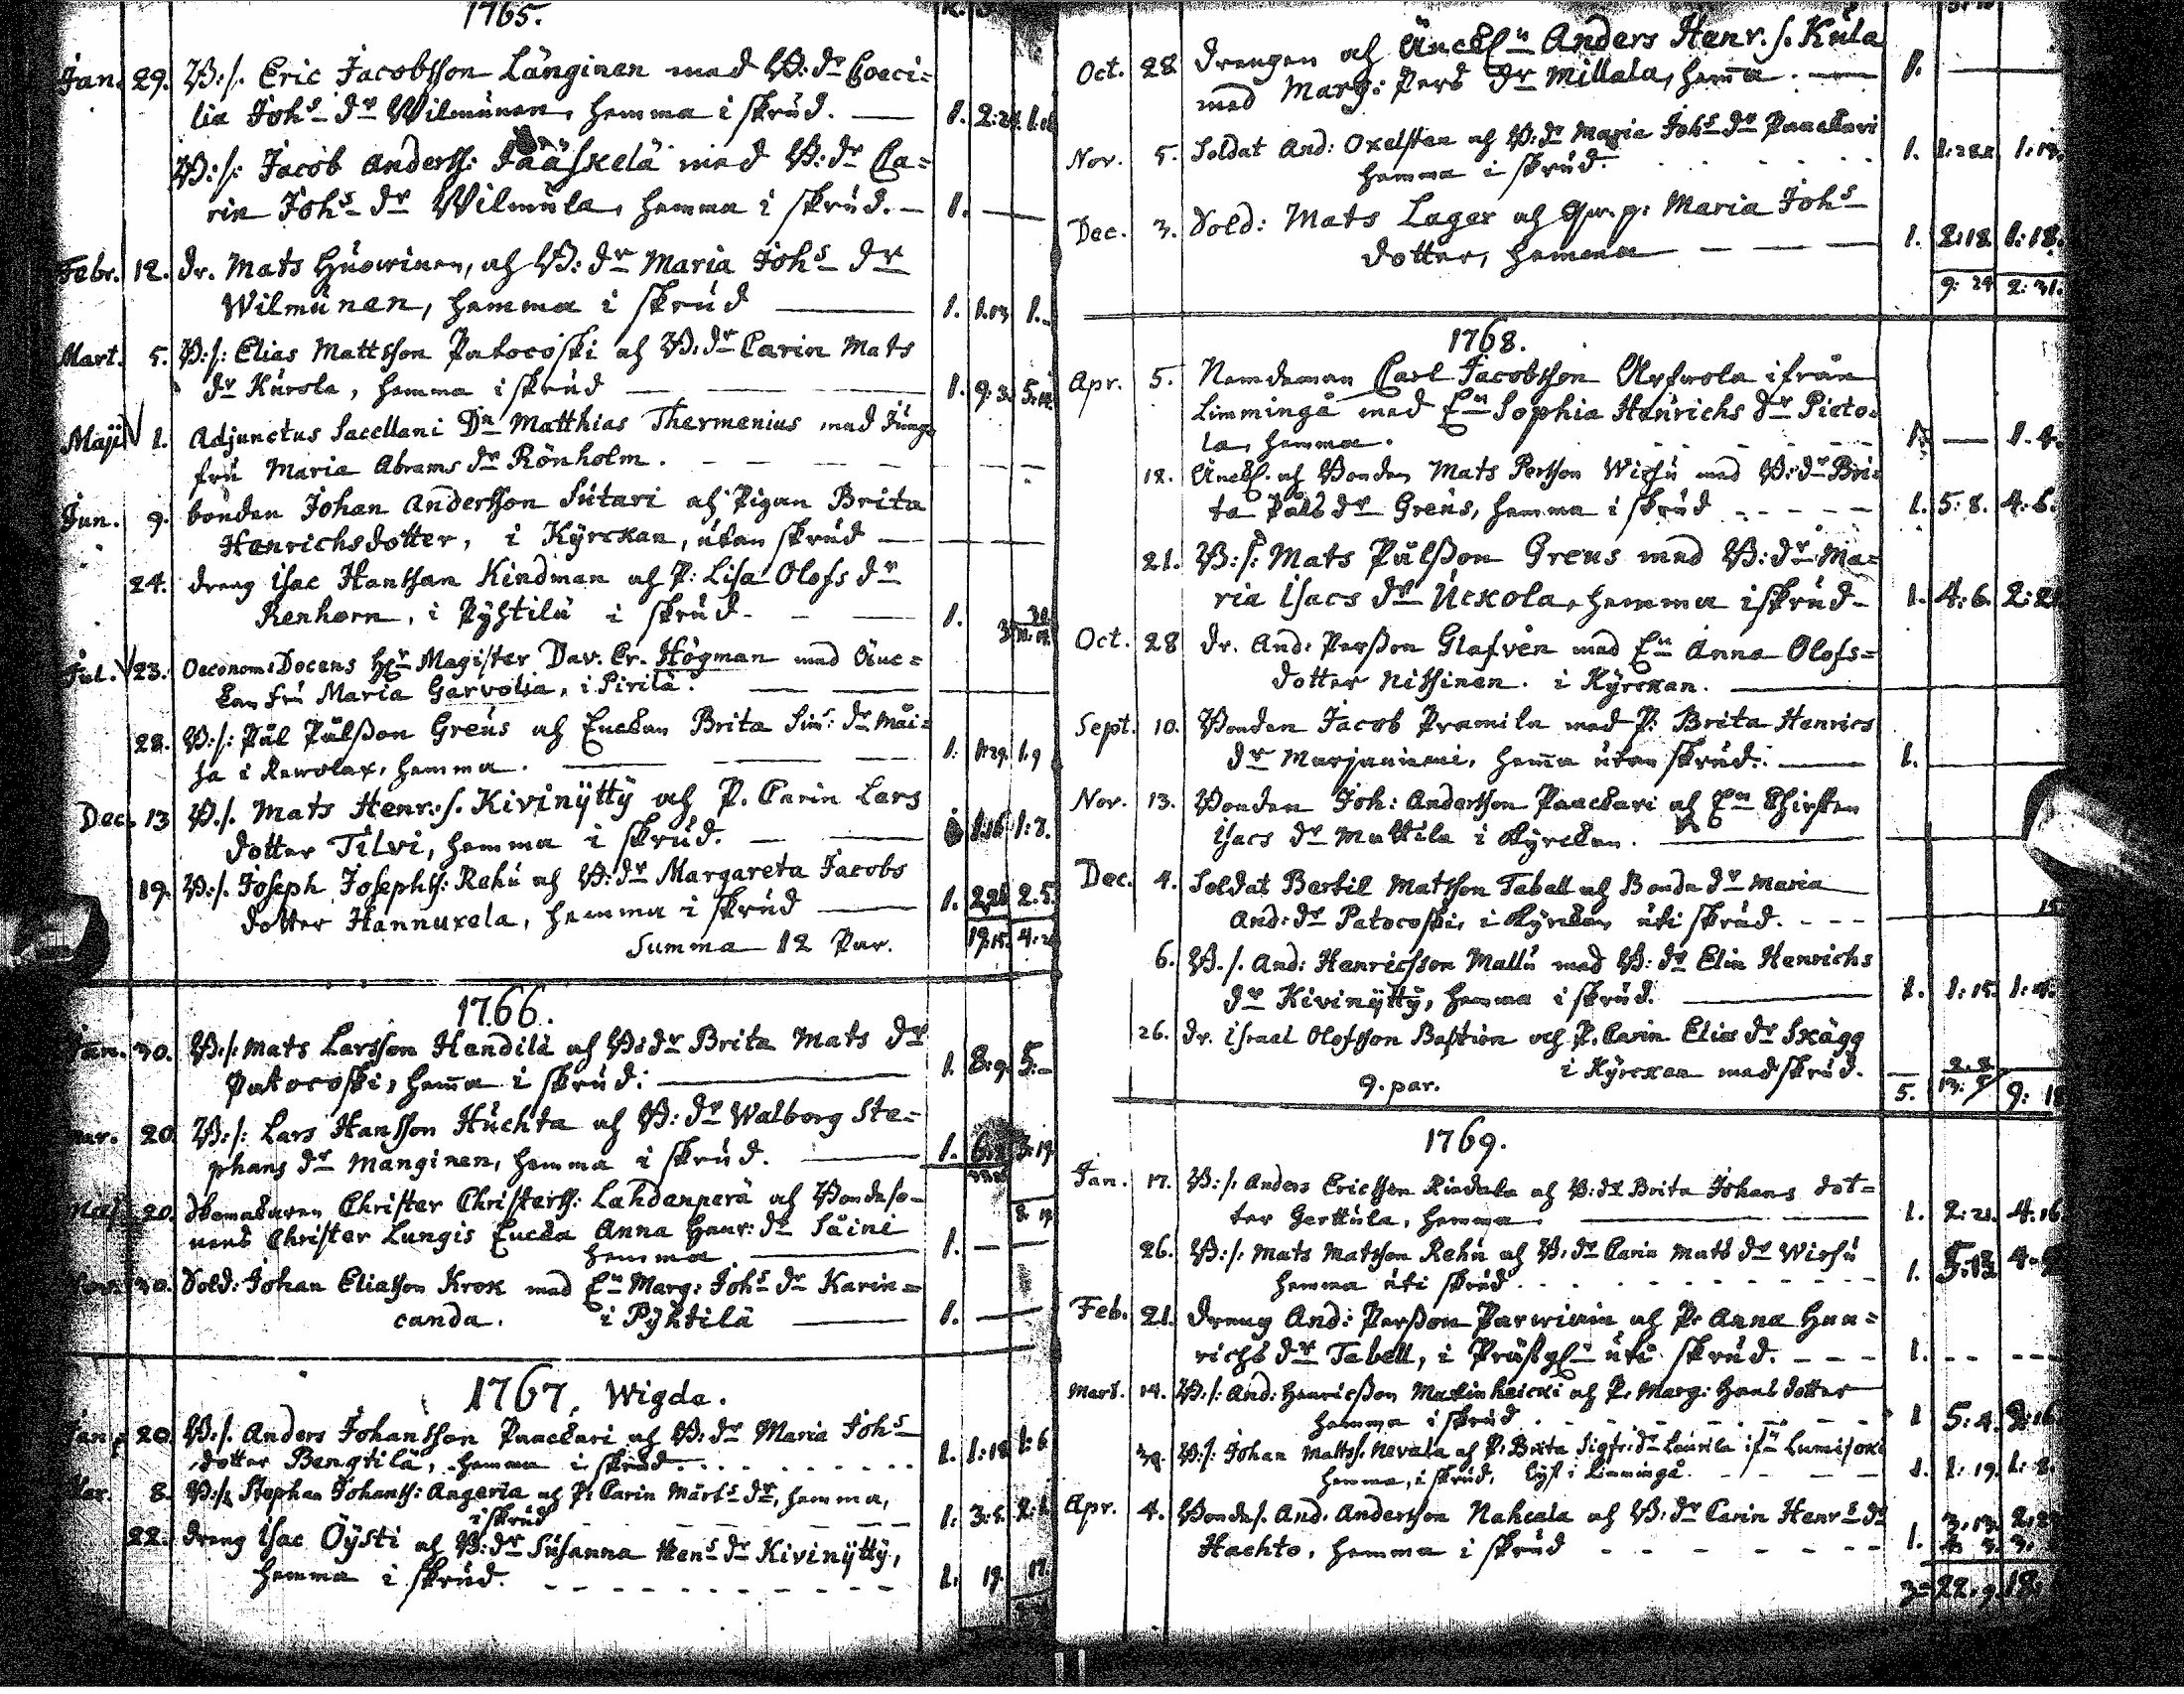 1765.
Jan. 29. B:s. Eric Jacobsson Länginen med B:dr Coeci=
lia Johs dr Wilmunen, hemma i skrud. — 1. 2:24. 1.
B:s: Jacob Anderss: Jääskelä med B:dr Ca=
rin Johs dr Wilmula, hemma i skrud. — 1. —
Febr. 12. dr. Mats Huowinen, och B:dr Maria Johs dr
Wilmunen, hemma i skrud — 1. 1.13 1.-
Mart. 5. B:s: Elias Mattsson Patocoski och B:dr Carin Mats
dr Kurola, hemma i skrud — 1. 9:3.
Maji 1. Adjunctus Sacellani Dn Matthias Thermenius med Jung
fru Maria Abrams dr Rönholm. - - -
Jun. 9. bonden Johan Andersson Sutari och Pigan Brita
Henrichsdotter, i Kyrckan, utan skrud —
24. dreng Isac Hansson Kindman och P: Lisa Olofs dr
Renhorn, i Pyhtilä i skrud. - — 1.
Jul. 23. Oeconom: Docens Hr Magister Dav. Er. Högman med Änc=
kan Fru Maria Garvolia, i Pirilä. —
28. B:s: Pål Pålsson Greus och Enckan Brita Sims: dr Mäi=
ha i Rewolax, hemma. — 1. 1:29. 1.9
Dec. 13 B.s. Mats Henr:s. Kivinÿttÿ och P. Carin Lars
dotter Tilvi, hemma i skrud. — 1:16 1:7.
19. B:s. Joseph Josephss: Rehu och B:dr Margareta Jacobs
dotter Hannuxela, hemma i skrud — 1. 2.26 2.5.
Summa 12 Par. 19.15. 4:
1766.
Jan. 30. B:s: Mats Larsson Handilä och B:dr Brita Mats dr
Patocoski, hema i skrud: — 1. 8:9. 5:-
Mar. 20. B:s: Lars Hansson Huchta och B:dr Walborg Ste=
phans dr Manginen, hemma i skrud. — 1. 3:19
Maj. 20. Skomakaren Christer Christerss: Lahdenperä och Bondeso-
nens Christer Lungis Encka Anna Henr: dr Säini
hemma — 1. —
30. Sold: Johan Eliasson Krok med En Marg: Johs dr Karin=
canda. i Pyhtilä — 1. —
1767. Wigda.
Jan. 20. B:s. Anders Johansson Paackari och B:dr Maria Johs
dotter Bengtilä, hemma i skrud. . . . 1. 1:18 1:6
Mar. 8. B:s. Stephan Johanss: Angeria och P: Carin Mårts dr, hemma,
i skrud - - - 1. 3:
22. dreng Isac Öysti och B:dr Susanna Hens dr Kivinÿttÿ,
hemma i skrud. - - - 1. 19. 17.
Oct. 28 drengen och Änckl: Anders Henr. s. Kula
med Marg: Pers dr Millala, hema. — 1. —
Nov. 5. Soldat And: Oxelsten och B:dr Maria Johs dr Paackari
hemma i skrud. . . . 1.
Dec. 3. Sold: Mats Lager och Maria Johs
dotter, hemma — 1. 2:12 1:18.
9: 29 2:31.
1768.
Apr. 5. Nemdeman Carl Jacobsson ifrån
Limmingå med En Sophia Henrichs dr Pieto=
la, hemma. - - - 1. — 1.4.
12. Änckl. och Bonden Mats Persson Wiehu med B:dr Bri=
ta Påls dr Greus, hemma i skrud - - - 1. 5:8. 4:6.
21. B:s: Mats Pålsson Greus med B:dr Ma=
ria Isacs dr Uckola, hemma i skrud - 1. 4:6. 2:
Oct. 28 dr. And: Persson Glafvén med En Anna Olofs=
dotter Nissinen. i Kyrckan. —
Sept. 10. Bonden Jacob Pramila med P: Brita Henrics
dr Marjanieni, hema utan skrud: — 1. —
Nov. 13. Bonden Joh: Andersson Paackari och En Chirsten
Isacs dr Mattila i Kyrckan. —
Dec. 4. Soldat Bertil Matsson Tabell och Bonde dr Maria
And: dr Patocoski, i Kyrckan uti skrud. - - -
6. B.s. And: Henricsson Mallu med B: dr Elin Henrichs
dr Kivinÿttÿ, hemma i skrud. — 1. 1:15.
26. dr. Israel Olofsson Bastion och P. Carin Elias dr Skägg
i Kyrckan med skrud.
9. par. 5. 9:
1769.
Jan. 17. B:s. Anders Ericsson och B:dr Brita Johans dot=
ter Gerttula, hemma. — 1. 2:21. 4:16
26. B:s: Mats Matsson Rehu och B:dr Carin Mats dr Wiehu
hemma uti skrud. - - - 1.
Feb. 21. dreng And: Persson Parwiain och P: Anna Hen=
richs dr Tabell, i Prästg: uti skrud. - - - 1. - - - -
Mart. 14. B:s: And: Henricsson Matinheicki och P: Marg: Hans dotter
hemma i skrud. - - - 1 5:4.
30. B:s: Johan Mattss. Nevala och P: Brita Sigfr: dr Laurila ifrn Lumijoki
hemma, i skrud. Lyst i Limmingå. - - - 1. 1:19. 1:8.
Apr. 4. Bondes. And. Andersson Nahcala och B:dr Carin Henrs dr
Hachto, hemma i skrud - - - 1.
22.9. 18.